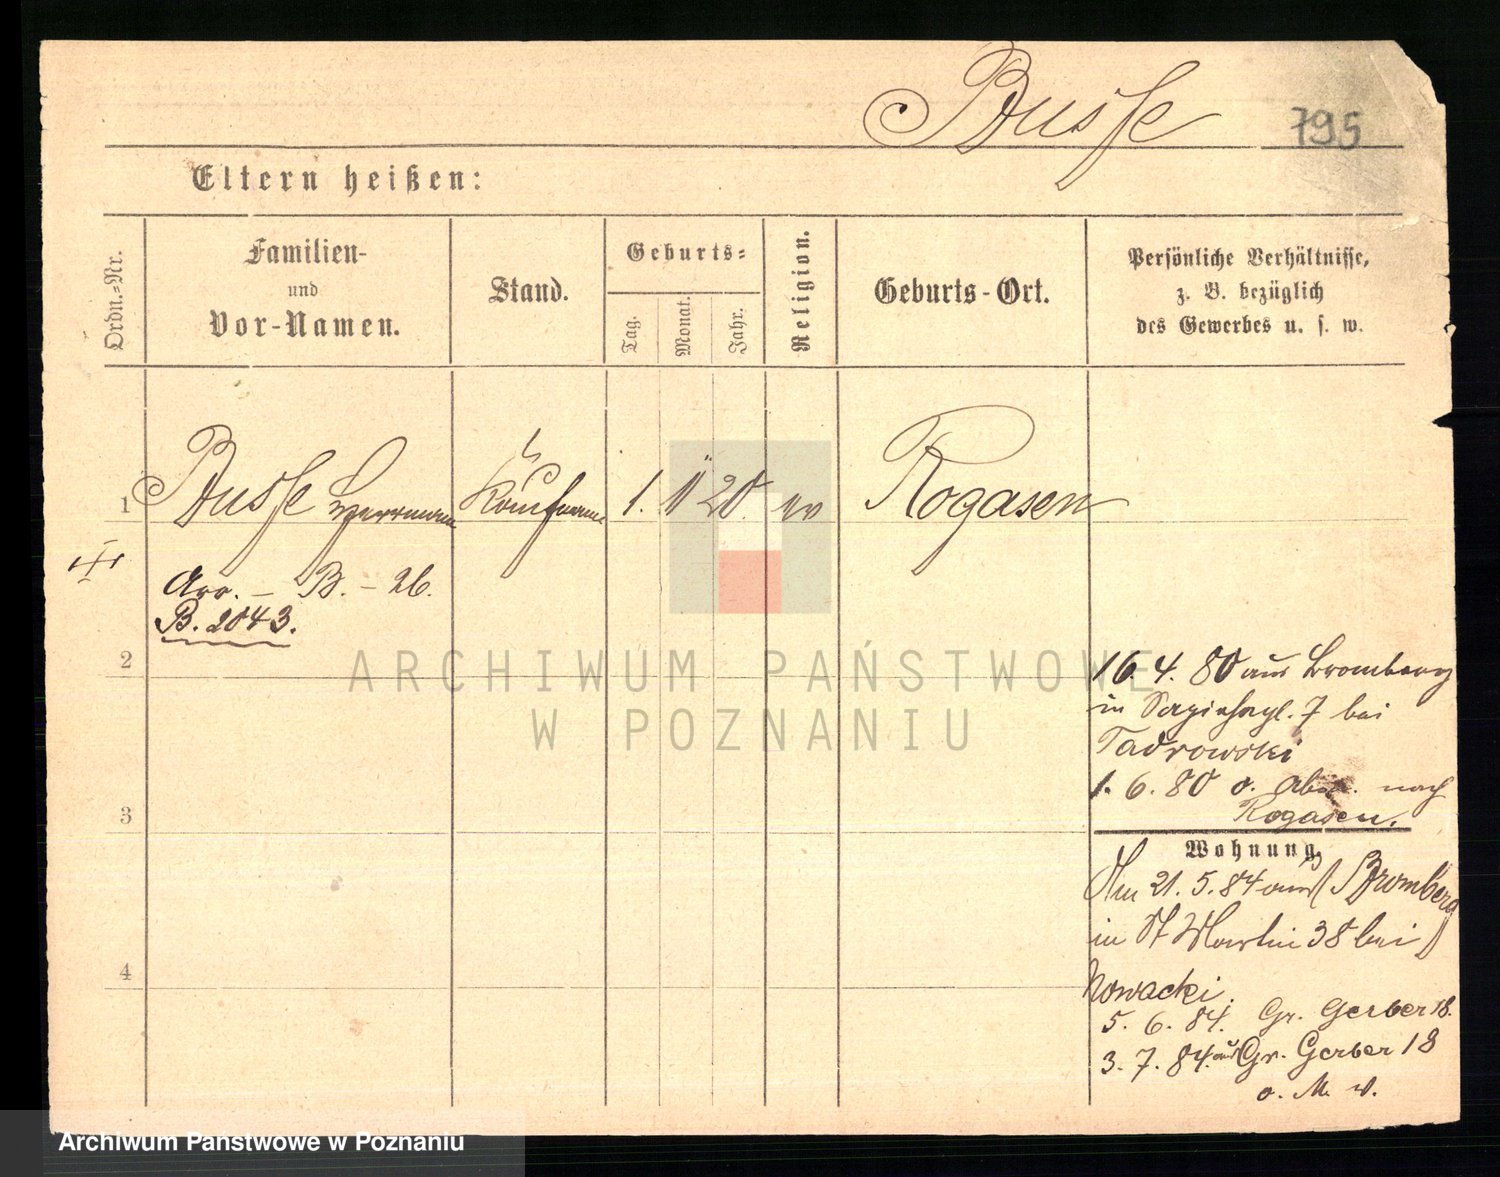 Busse 795
Eltern heißen:
Ordn.-Nr.
Familien-
und
Vor-Namen.
Stand.
Geburts-
Tag.
Monat.
Jahr.
Religion.
Geburts-Ort.
Persönliche Verhältnisse,
z. B. bezüglich
des Gewerbes u. s. w.
1 Busse Herrmann Kaufmann 1. 11 20 ev Rogasen
Arr. – B. – 26.
B. 2043.
2
3
4
16. 4. 80 aus Bromberg
in Sapiehapl. 7 bei
Tadrowski
1. 6. 80 nach
Rogasen.
Wohnung
Am 21. 5. 84 aus Bromberg
in St Martin 38 bei
Nowacki.
5. 6. 84. Gr. Gerber 18.
3. 7. 84. aus Gr. Gerber 18
o. M. v.
ARCHIWUM PAŃSTWOWE
W POZNANIU
Archiwum Państwowe w Poznaniu